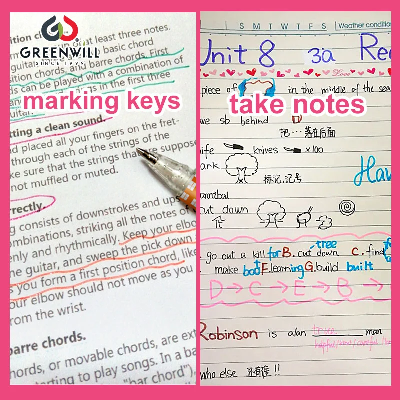 GREENWILL
SINCE 1978
marking keys
ition chords
up at least three notes.
basic chord
guitar
ition chords, and barre chords. First
ds can be played with a combination of
ings in the first three
guitar.
tting a clean sound.
d placed all your fingers on the fret-
through each of the strings of the
ke sure that the strings that are supposed
not muffled or muted.
rrectly.
g consists of downstrokes and ups
ombinations, striking all the notes o
enly and rhythmically. Keep your elbo
he guitar, and sweep the pick down
s you form a first position chord, like
our elbow should not move as you
from the wrist.
barre chords.
hords, or movable chords, are ext
tarting to play songs. In a ba
"bar chord"),
take notes
S M T W T F S Weather condition
Unit 8 3a Rea
Love
piece of in the middle of the sea
ve sb behind
把…落在后面
knives x100
标记,记号
Hav
cannibal
cut down
go out a kill for B. cut down tree C. find
make boat F. learning G. build built
D → C → E → B →
Robinson is a/an man
who else 还有谁!!